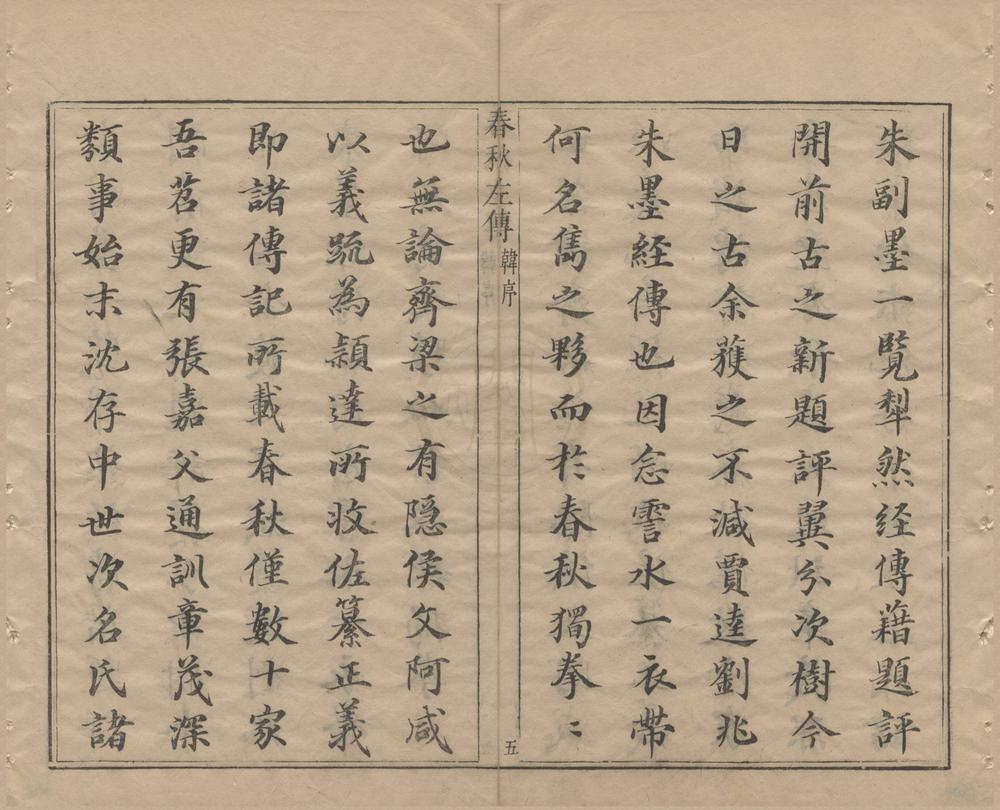 朱副墨一覧犁然経傳藉題評
開前古之新題評翼分次樹今
日之古余蒦之不減賈逵劉兆
朱墨經傳也因念霅水一衣帶
何名雋之夥而於春秋獨拳〻
春秋左傳 韓序 五
也無論齊梁之有隠侯文阿咸
以義䟽為頴達所收佐纂正義
即諸傳記所載春秋僅數十家
吾苕更有張嘉父通訓章茂深
類事始末沈存中世次名氏諸